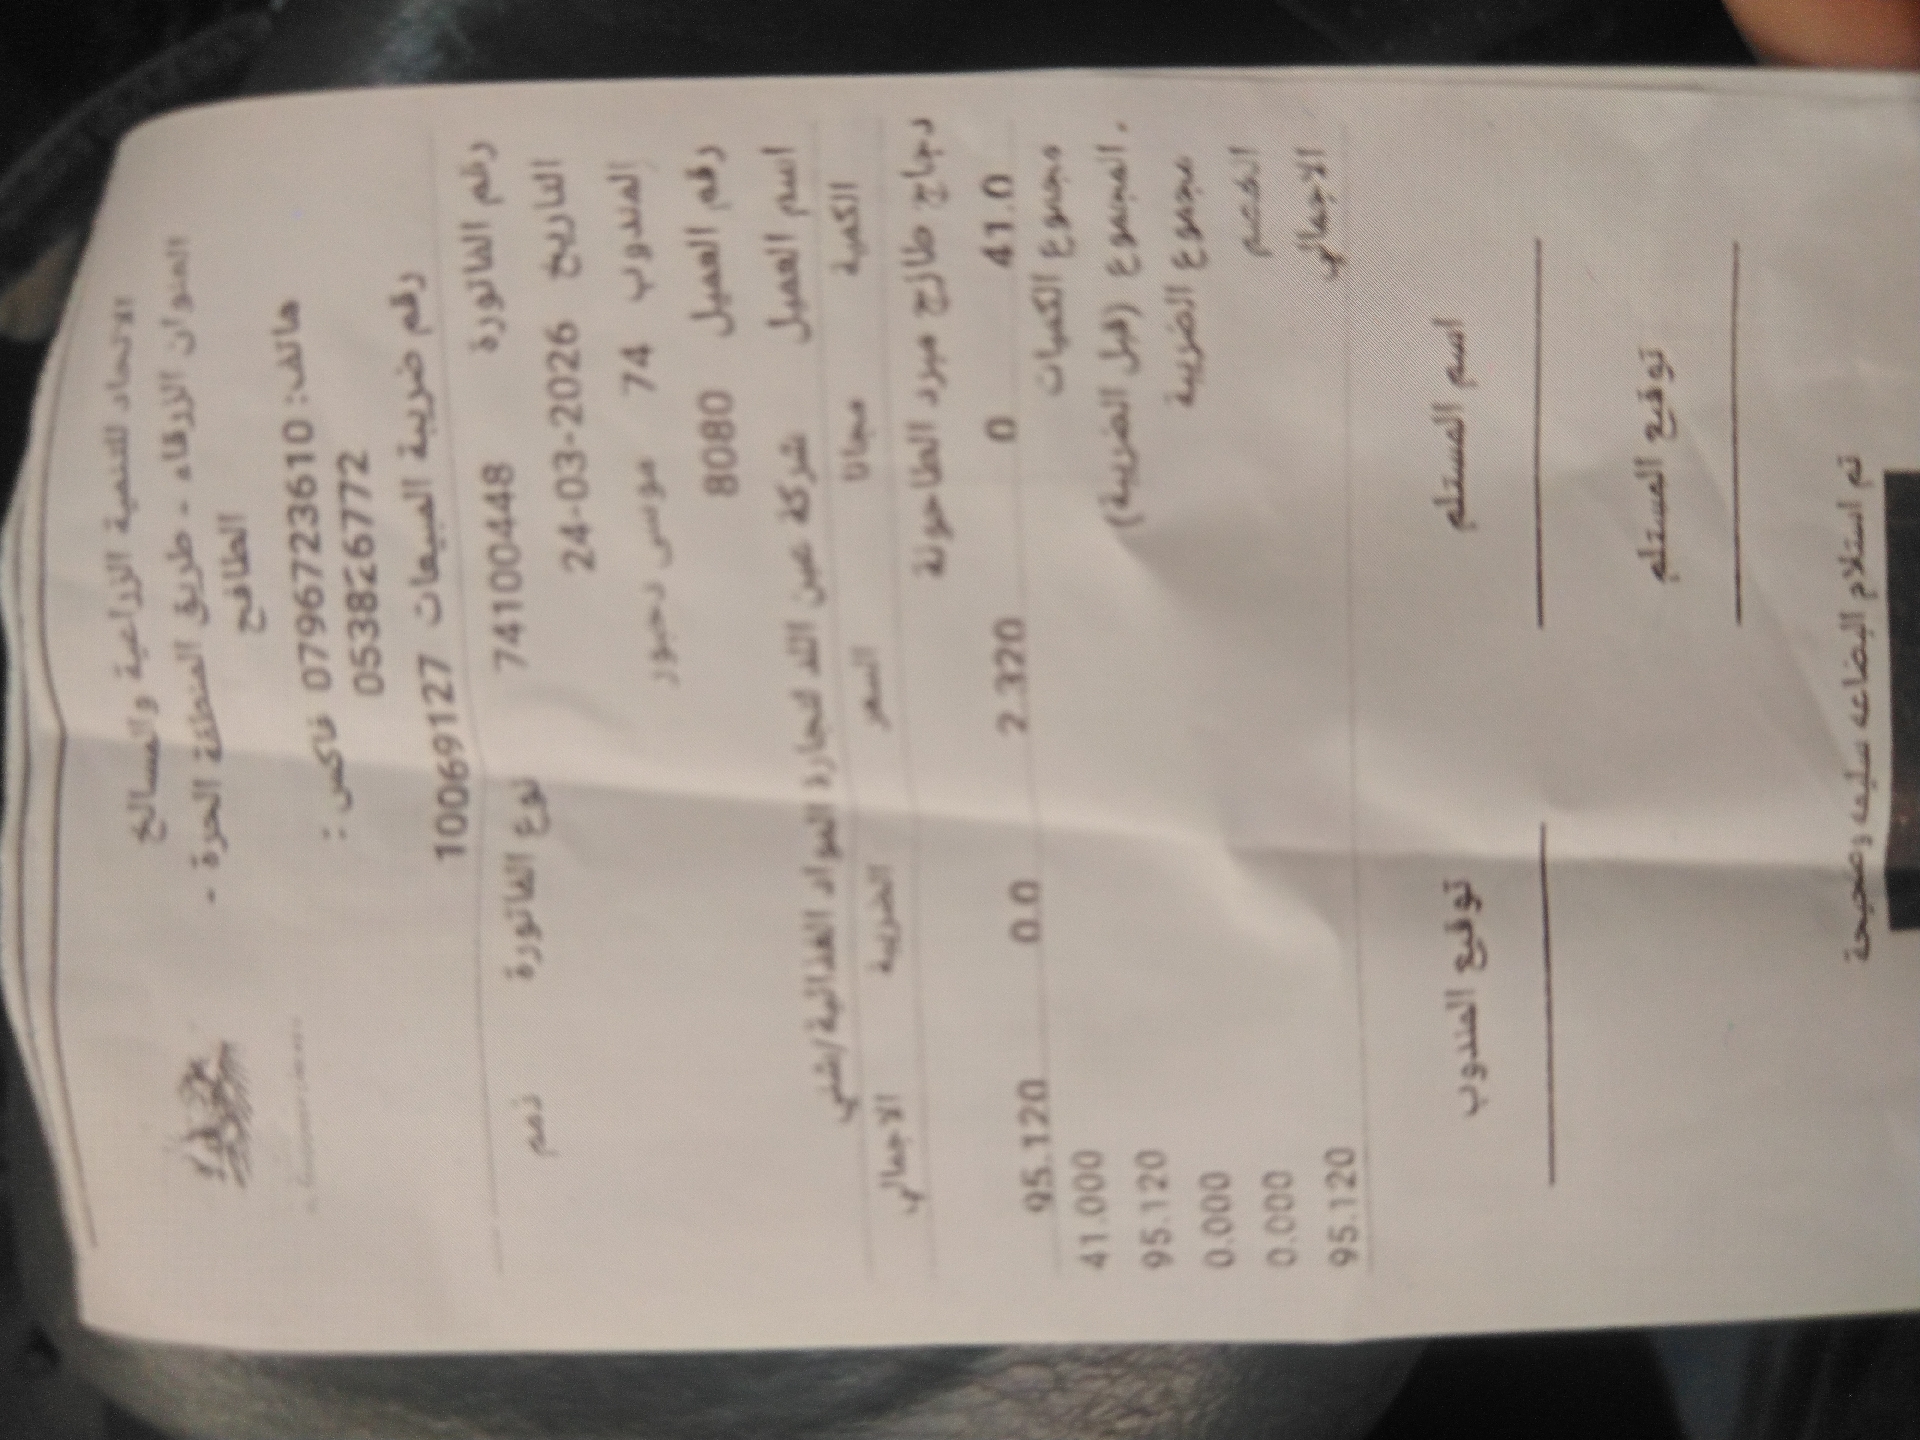 الاتحاد للتنمية الزراعية والمسالخ
العنوان الزرقاء - طريق المنطقة الحرة -
هاتف: 0796723610 فاكس:
0538267772
رقم ضريبة المبيعات 10069127
رقم الفاتورة 74100448 نوع الفاتورة ذمم
التاريخ 24-03-2026
المندوب 74 موسى دحبور
رقم العميل 8080
اسم العميل شركة عين اللد لتجارة المواد الغذائية/
الكمية مجانا السعر الضريبة الاجمالي
دجاج طازج مبرد الطاحونة
41.0 0 2.320 0.0 95.120
مجموع الكميات 41.000
المجموع (قبل الضريبة) 95.120
مجموع الضريبة 0.000
الخصم 0.000
الاجمالي 95.120
اسم المستلم توقيع المندوب
توقيع المستلم
تم استلام البضاعه سليمه وصحيحة